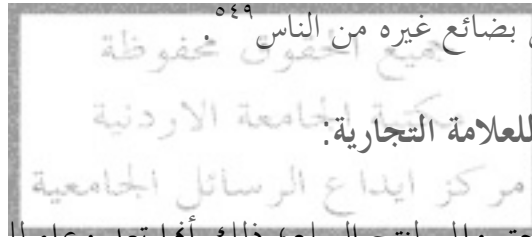 بضائع غيره من الناس٥٤٩.
جميع الحقوق محفوظة
مكتبة الجامعة الاردنية
للعلامة التجارية:
مركز ايداع الرسائل الجامعية